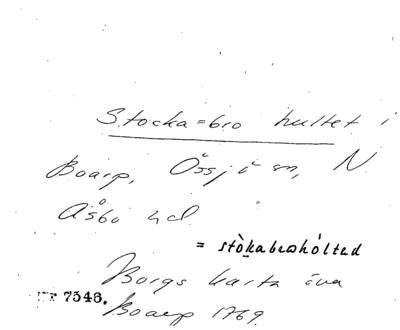 Stocka=bro hultet i
Boarp, Össjö sn, N.
Åsbo hd.
= stòkabrohólted
Borgs karta öva
Boarp 1769.
7548.